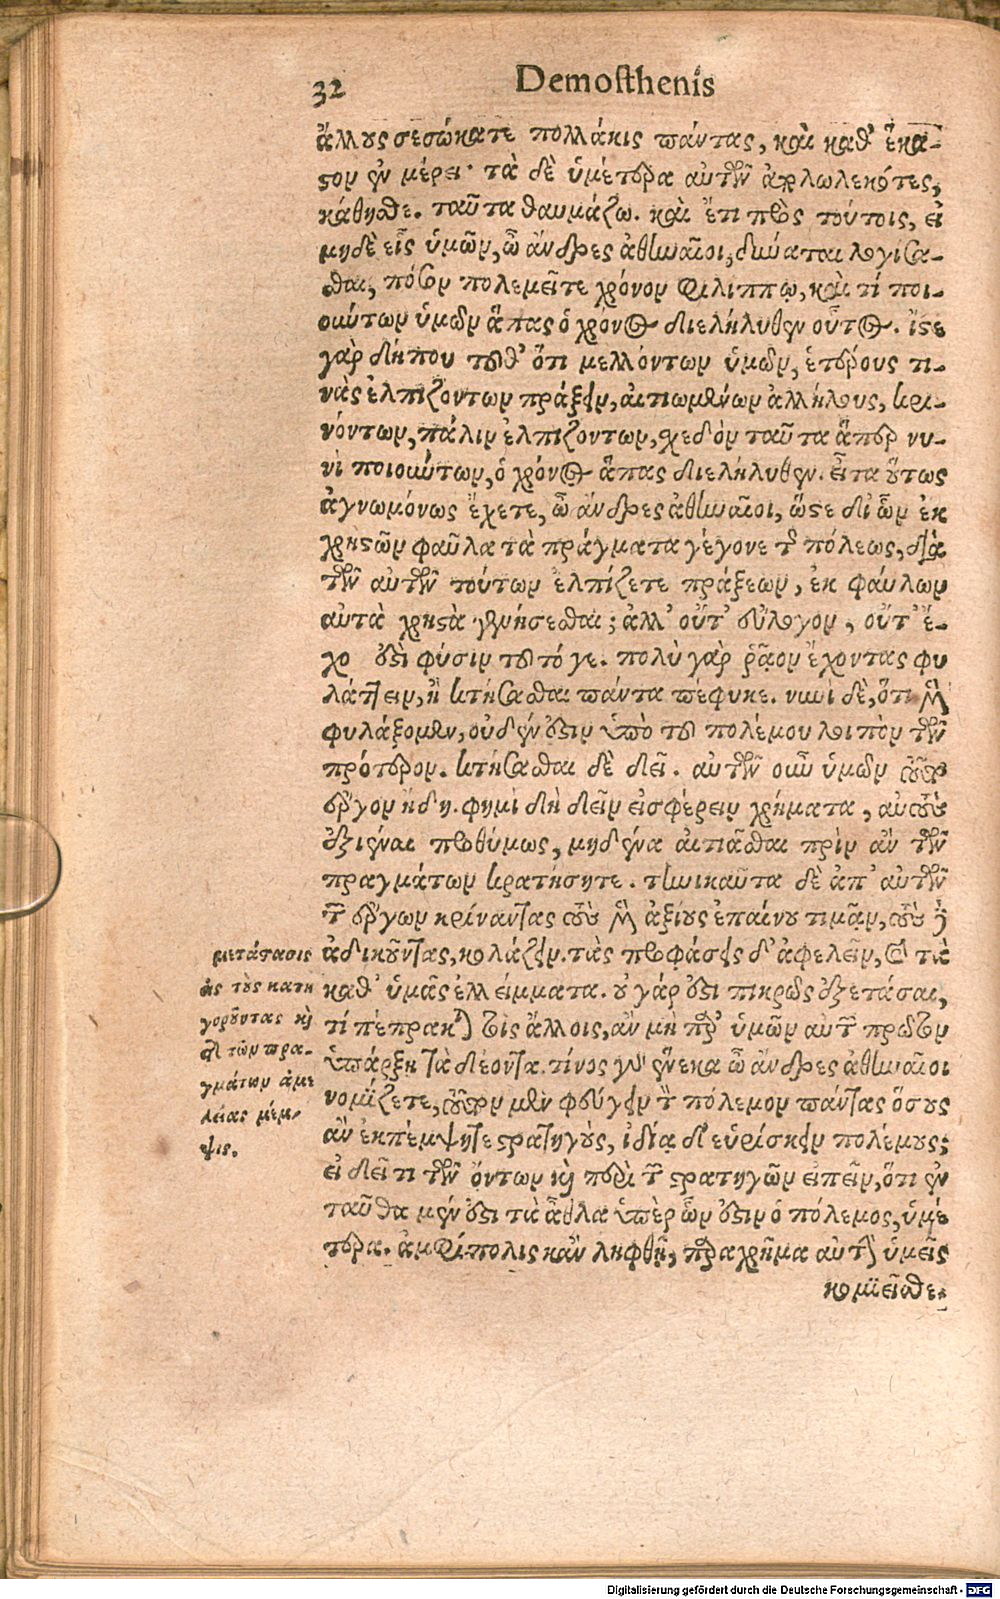 32 Demosthenis
ἄλλους σεσώκατε πολλάκις πάντας, καὶ καθ' ἕκα-
στον ἐν μέρει· τὰ δὲ ὑμέτερα αὐτῶν ἀπολωλεκότες,
κάθησθε. ταῦτα θαυμάζω. καὶ ἔτι πρὸς τούτοις, εἰ
μηδὲ εἷς ὑμῶν, ὦ ἄνδρες ἀθηναῖοι, δύναται λογίσα-
σθαι, πόσον πολεμεῖτε χρόνον Φιλίππῳ, καὶ τί ποι-
ούντων ὑμῶν ἅπας ὁ χρόνος διελήλυθεν οὗτος. ἴστε
γὰρ δήπου τοῦθ' ὅτι μελλόντων ὑμῶν, ἑτέρους τι-
νὰς ἐλπιζόντων πράξειν, αἰτιωμένων ἀλλήλους, κρι-
νόντων, πάλιν ἐλπιζόντων, σχεδὸν ταῦτα ἅπερ νυ-
νὶ ποιούντων, ὁ χρόνος ἅπας διελήλυθεν. εἶτα οὕτως
ἀγνωμόνως ἔχετε, ὦ ἄνδρες ἀθηναῖοι, ὥστε δι' ὧν ἐκ
χρηστῶν φαῦλα τὰ πράγματα γέγονε τῆς πόλεως, διὰ
τῶν αὐτῶν τούτων ἐλπίζετε πράξεων, ἐκ φαύλων
αὐτὰ χρηστὰ γενήσεσθαι; ἀλλ' οὔτ' εὔλογον, οὔτ' ἔ-
χο ἐστὶ φύσιν τοῦτό γε. πολὺ γὰρ ῥᾷον ἔχοντας φυ
λάττειν, ἢ κτήσασθαι πάντα πέφυκε. νυνὶ δὲ, ὅτι μὲν
φυλάξομεν, οὐδέν ἐστιν ὑπὸ τοῦ πολέμου λοιπὸν τῶν
πρότερον. κτήσασθαι δὲ δεῖ. αὐτῶν οὖν ὑμῶν τοῦτο
ἔργον ἤδη. φημὶ δὴ δεῖν εἰσφέρειν χρήματα, αὐτοὺς
ἐξιέναι προθύμως, μηδένα αἰτιᾶσθαι πρὶν ἂν τῶν
πραγμάτων κρατήσητε. τηνικαῦτα δὲ ἀπ' αὐτῶν
τῶν ἔργων κρίναντας τοὺς μὲν ἀξίους ἐπαίνου τιμᾷν, τοὺς δ'
ἀδικοῦντας, κολάζειν. τὰς προφάσεις δ' ἀφελεῖν, καὶ τὰ
καθ' ὑμᾶς ἐλλείμματα. οὐ γάρ ἐστι πικρῶς ἐξετάσαι,
τί πέπρακται τοῖς ἄλλοις, ἂν μὴ παρ' ὑμῶν αὐτῶν πρῶτον
ὑπάρξῃ τὰ δέοντα. τίνος γὰρ ἕνεκα ὦ ἄνδρες ἀθηναῖοι
νομίζετε, τοῦτον μὲν φεύγειν τὸν πόλεμον πάντας ὅσους
ἂν ἐκπέμψητε στρατηγοὺς, ἰδίᾳ δ' εὑρίσκειν πολέμους;
εἰ δεῖ τι τῶν ὄντων καὶ περὶ τῶν στρατηγῶν εἰπεῖν, ὅτι ἐν
ταῦθα μέν ἐστι τὰ ἆθλα ὑπὲρ ὧν ἐστιν ὁ πόλεμος, ὑμέ
τερα. ἀμφίπολις κἂν ληφθῇ, παραχρῆμα αὐτὴν ὑμεῖς
κομιεῖσθε.
μετάστασις
εἰς τοὺς κατη
γοροῦντας καὶ
τῶν πρα-
γμάτων ἀμε
λείας μέμ-
ψις.
Digitalisierung gefördert durch die Deutsche Forschungsgemeinschaft - DFG